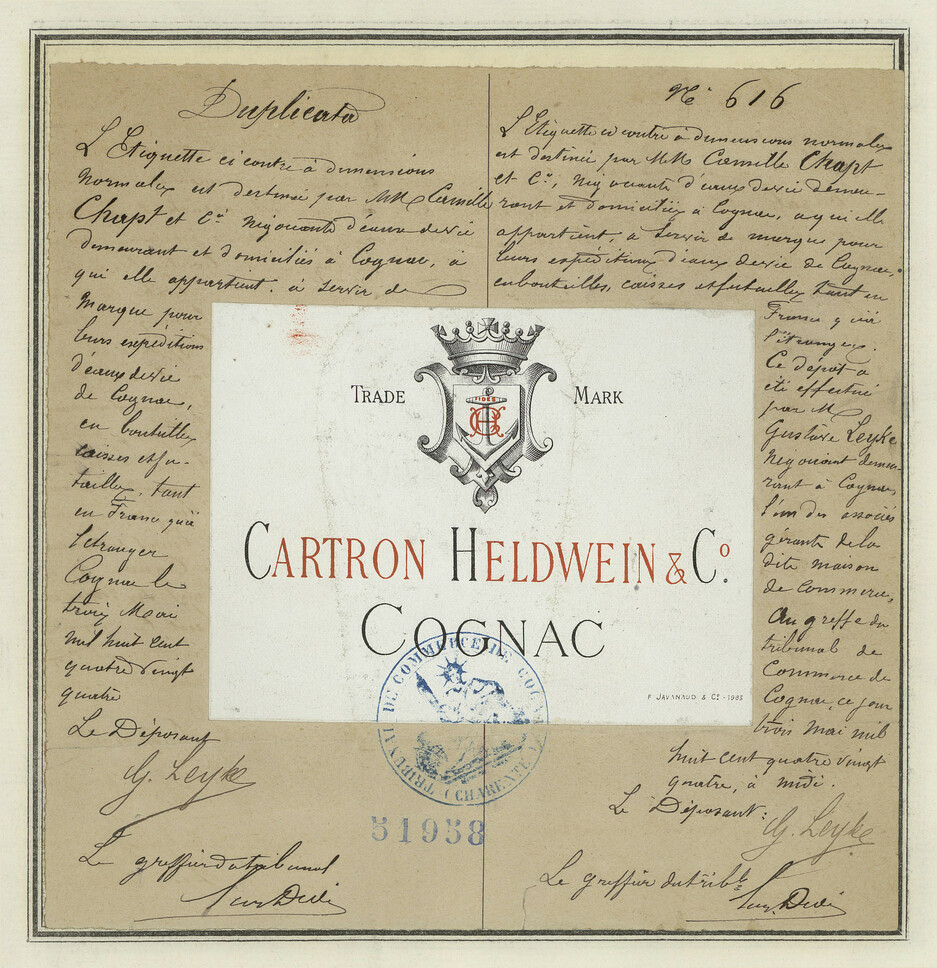 Duplicata
L'Etiquette ci contre à dimensions
normales est destinée par MM Camille
Chapt et Cie négociants d'eaux de vie
demeurant et domiciliés à Cognac, à
qui elle appartient. à servir de
marque pour
leurs expéditions
d'eaux de vie
de Cognac,
en bouteilles
caisses et fu-
tailles, tant
en France qu'à
l'étranger
Cognac le
trois Mai
mil huit cent
quatre vingt
quatre
Le Déposant
G. Leyke
Le greffier du tribunal
No 616
L'Etiquette ci contre à dimensions normales
est destinée par MM Camille Chapt
et Cie, négociants d'eaux de vie demeu-
rant et domiciliés à Cognac, a qui elle
appartient, à servir de marque pour
leurs expéditions d'eaux de vie de Cognac,
en bouteilles, caisses et futailles tant en
France qu'à
l'étranger.
Ce dépôt a
été effectué
par M
Gustave Leyke
négociant demeu-
rant à Cognac,
l'un des associés
gérants de la
dite maison
de commerce,
au greffe du
tribunal de
Commerce de
Cognac, ce jour
trois mai mil
huit cent quatre vingt
quatre, à midi.
Le Déposant:
G. Leyke
Le greffier du tribl
TRADE MARK
FIDES
CH
CARTRON HELDWEIN & Co.
COGNAC
F. JAVANAUD & Co - 1983
TRIBUNAL DE COMMERCE DE COGNAC
(CHARENTE)
51958